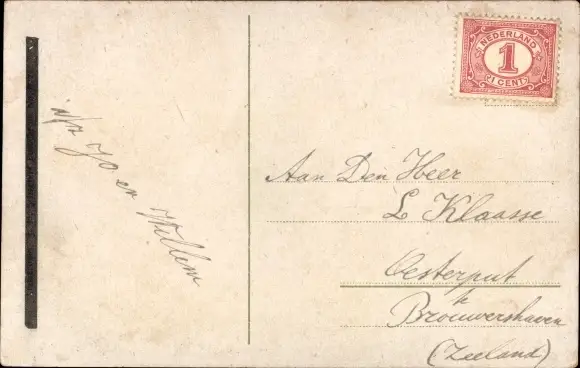 NEDERLAND
1
1 CENT
Jo en Willem
Aan Den Heer
L Klaasse
Oesterput
te
Brouwershaven
(Zeeland)